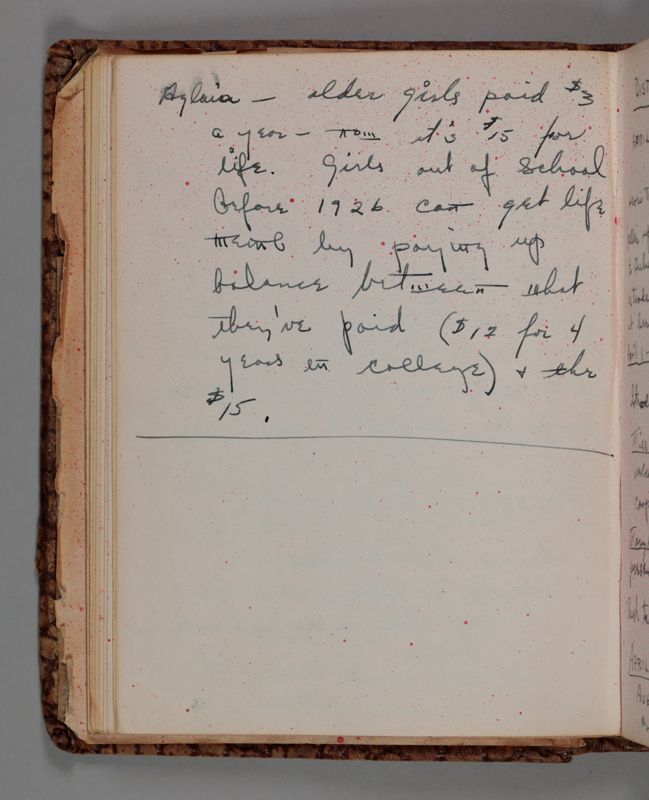 Aglaia — older girls paid $3
a year — now it's $15 for
life. Girls out of School
Before 1926 can get life
memb by paying up
balance between what
they've paid ($12 for 4
years in college) + the
$15.
DIST
APRIL